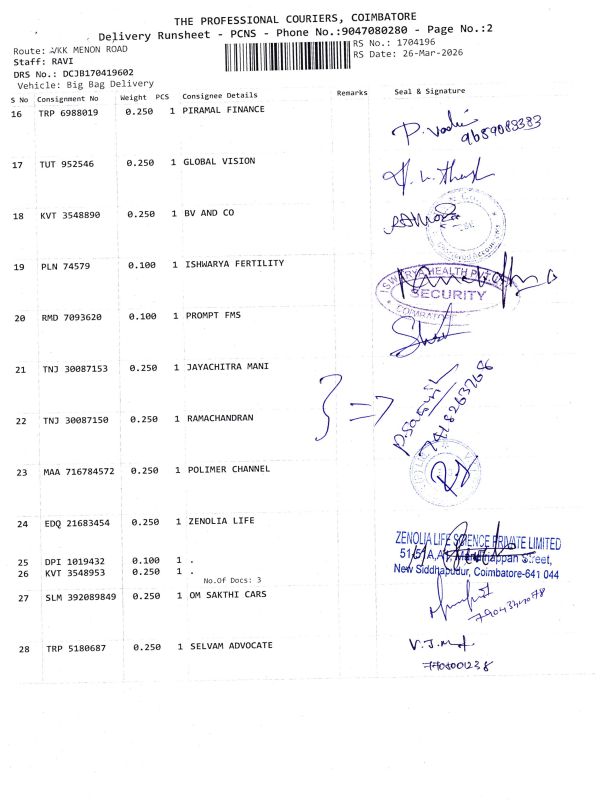 THE PROFESSIONAL COURIERS, COIMBATORE
Delivery Runsheet - PCNS - Phone No.:9047080280 - Page No.:2
Route: VKK MENON ROAD
RS No.: 1704196
Staff: RAVI
RS Date: 26-Mar-2026
DRS No.: DCJB170419602
Vehicle: Big Bag Delivery
S No Consignment No Weight PCS Consignee Details Remarks Seal & Signature
16 TRP 6988019 0.250 1 PIRAMAL FINANCE
9689089383
17 TUT 952546 0.250 1 GLOBAL VISION
18 KVT 3548890 0.250 1 BV AND CO
19 PLN 74579 0.100 1 ISHWARYA FERTILITY
ISWARYA HEALTH PVT
SECURITY
COIMBATORE
20 RMD 7093620 0.100 1 PROMPT FMS
21 TNJ 30087153 0.250 1 JAYACHITRA MANI
22 TNJ 30087150 0.250 1 RAMACHANDRAN
7418263768
23 MAA 716784572 0.250 1 POLIMER CHANNEL
24 EDQ 21683454 0.250 1 ZENOLIA LIFE
ZENOLIA LIFE SCIENCE PRIVATE LIMITED
51/51A, Street,
New Siddhapudur, Coimbatore-641 044
25 DPI 1019432 0.100 1 .
26 KVT 3548953 0.250 1 .
No.Of Docs: 3
27 SLM 392089849 0.250 1 OM SAKTHI CARS
28 TRP 5180687 0.250 1 SELVAM ADVOCATE